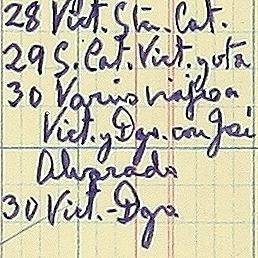 28 Vict. Sta. Cat.
29 S. Cat. Vict. y ota
30 Varios viajes a
Vict. y Dgo. con José
Alvarado
30 Vict. - Dgo